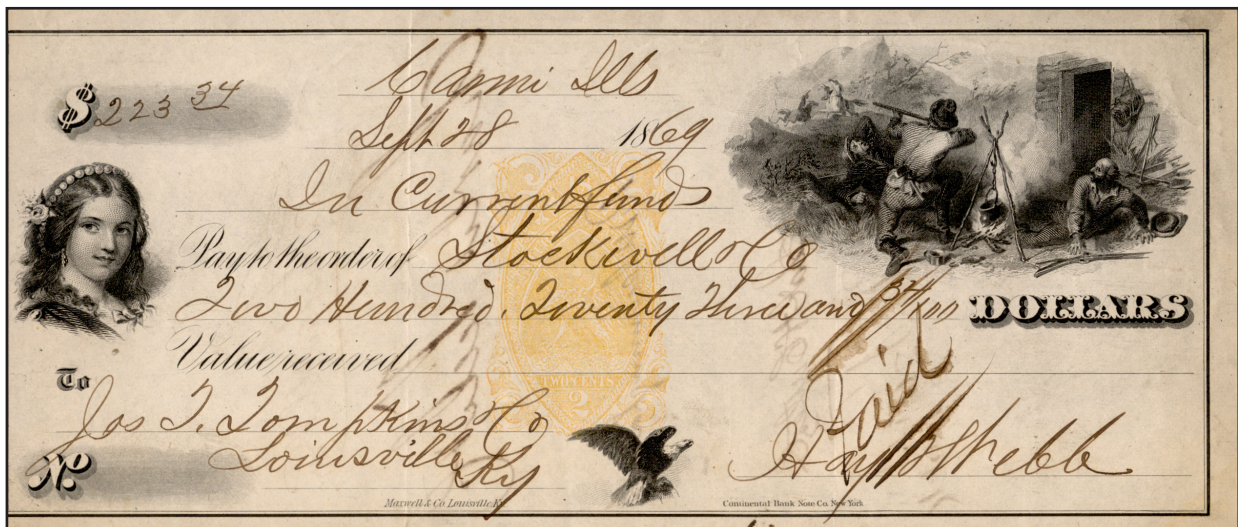 $ 223 34
Carmi Ills
Sept 28 1869
In Current funds
Pay to the order of Stockwell & Co
Two Hundred. Twenty Three and 34/100 DOLLARS
Value received
TWO CENTS
2
To
Jos T. Tompkins & Co
Louisville Ky
No
Paid
Webb
Maxwell & Co Louisville Ky
Continental Bank Note Co. New York